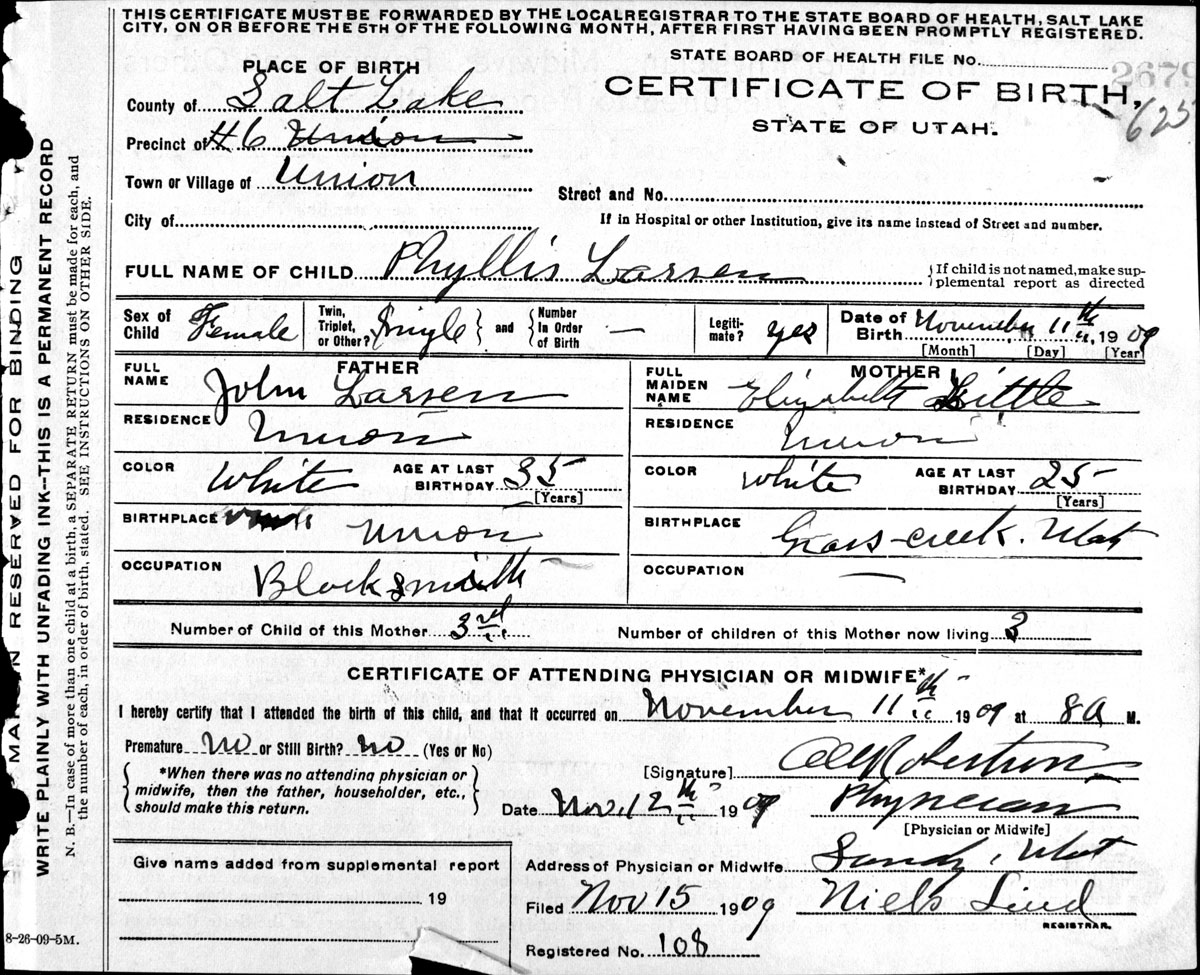 THIS CERTIFICATE MUST BE FORWARDED BY THE LOCAL REGISTRAR TO THE STATE BOARD OF HEALTH, SALT LAKE
CITY, ON OR BEFORE THE 5TH OF THE FOLLOWING MONTH, AFTER FIRST HAVING BEEN PROMPTLY REGISTERED.
STATE BOARD OF HEALTH FILE No. 2679
625
PLACE OF BIRTH
CERTIFICATE OF BIRTH,
STATE OF UTAH.
County of Salt Lake
Precinct of #6 Union
Town or Village of Union
Street and No.
City of
If in Hospital or other Institution, give its name instead of Street and number.
FULL NAME OF CHILD Phyllis Larsen
{If child is not named, make sup-
plemental report as directed
Sex of Child Female
Twin, Triplet, or Other? Single } and { Number In Order of Birth —
Legiti-mate? yes
Date of Birth November 11th, 1909
[Month] [Day] [Year]
FATHER
FULL NAME John Larsen
RESIDENCE Union
COLOR White AGE AT LAST BIRTHDAY 35
[Years]
BIRTHPLACE Union
OCCUPATION Blacksmith
MOTHER
FULL MAIDEN NAME Elizabeth Little
RESIDENCE Union
COLOR White AGE AT LAST BIRTHDAY 25
[Years]
BIRTHPLACE Grass-creek. Utah
OCCUPATION —
Number of Child of this Mother 3rd
Number of children of this Mother now living 3
CERTIFICATE OF ATTENDING PHYSICIAN OR MIDWIFE*
I hereby certify that I attended the birth of this child, and that it occurred on November 11th 1909 at 8 A M.
Premature No or Still Birth? No (Yes or No)
{ *When there was no attending physician or
midwife, then the father, householder, etc.,
should make this return. }
[Signature] Robertson
Date Nov. 12th 1909
Physician
[Physician or Midwife]
Address of Physician or Midwife Sandy, Utah
Give name added from supplemental report
19
Filed Nov 15 1909 Niels Lind
REGISTRAR.
Registered No. 108
8-26-09-5M.
MARGIN RESERVED FOR BINDING
WRITE PLAINLY WITH UNFADING INK--THIS IS A PERMANENT RECORD
N. B.—In case of more than one child at a birth, a SEPARATE RETURN must be made for each, and
the number of each, in order of birth, stated. SEE INSTRUCTIONS ON OTHER SIDE.